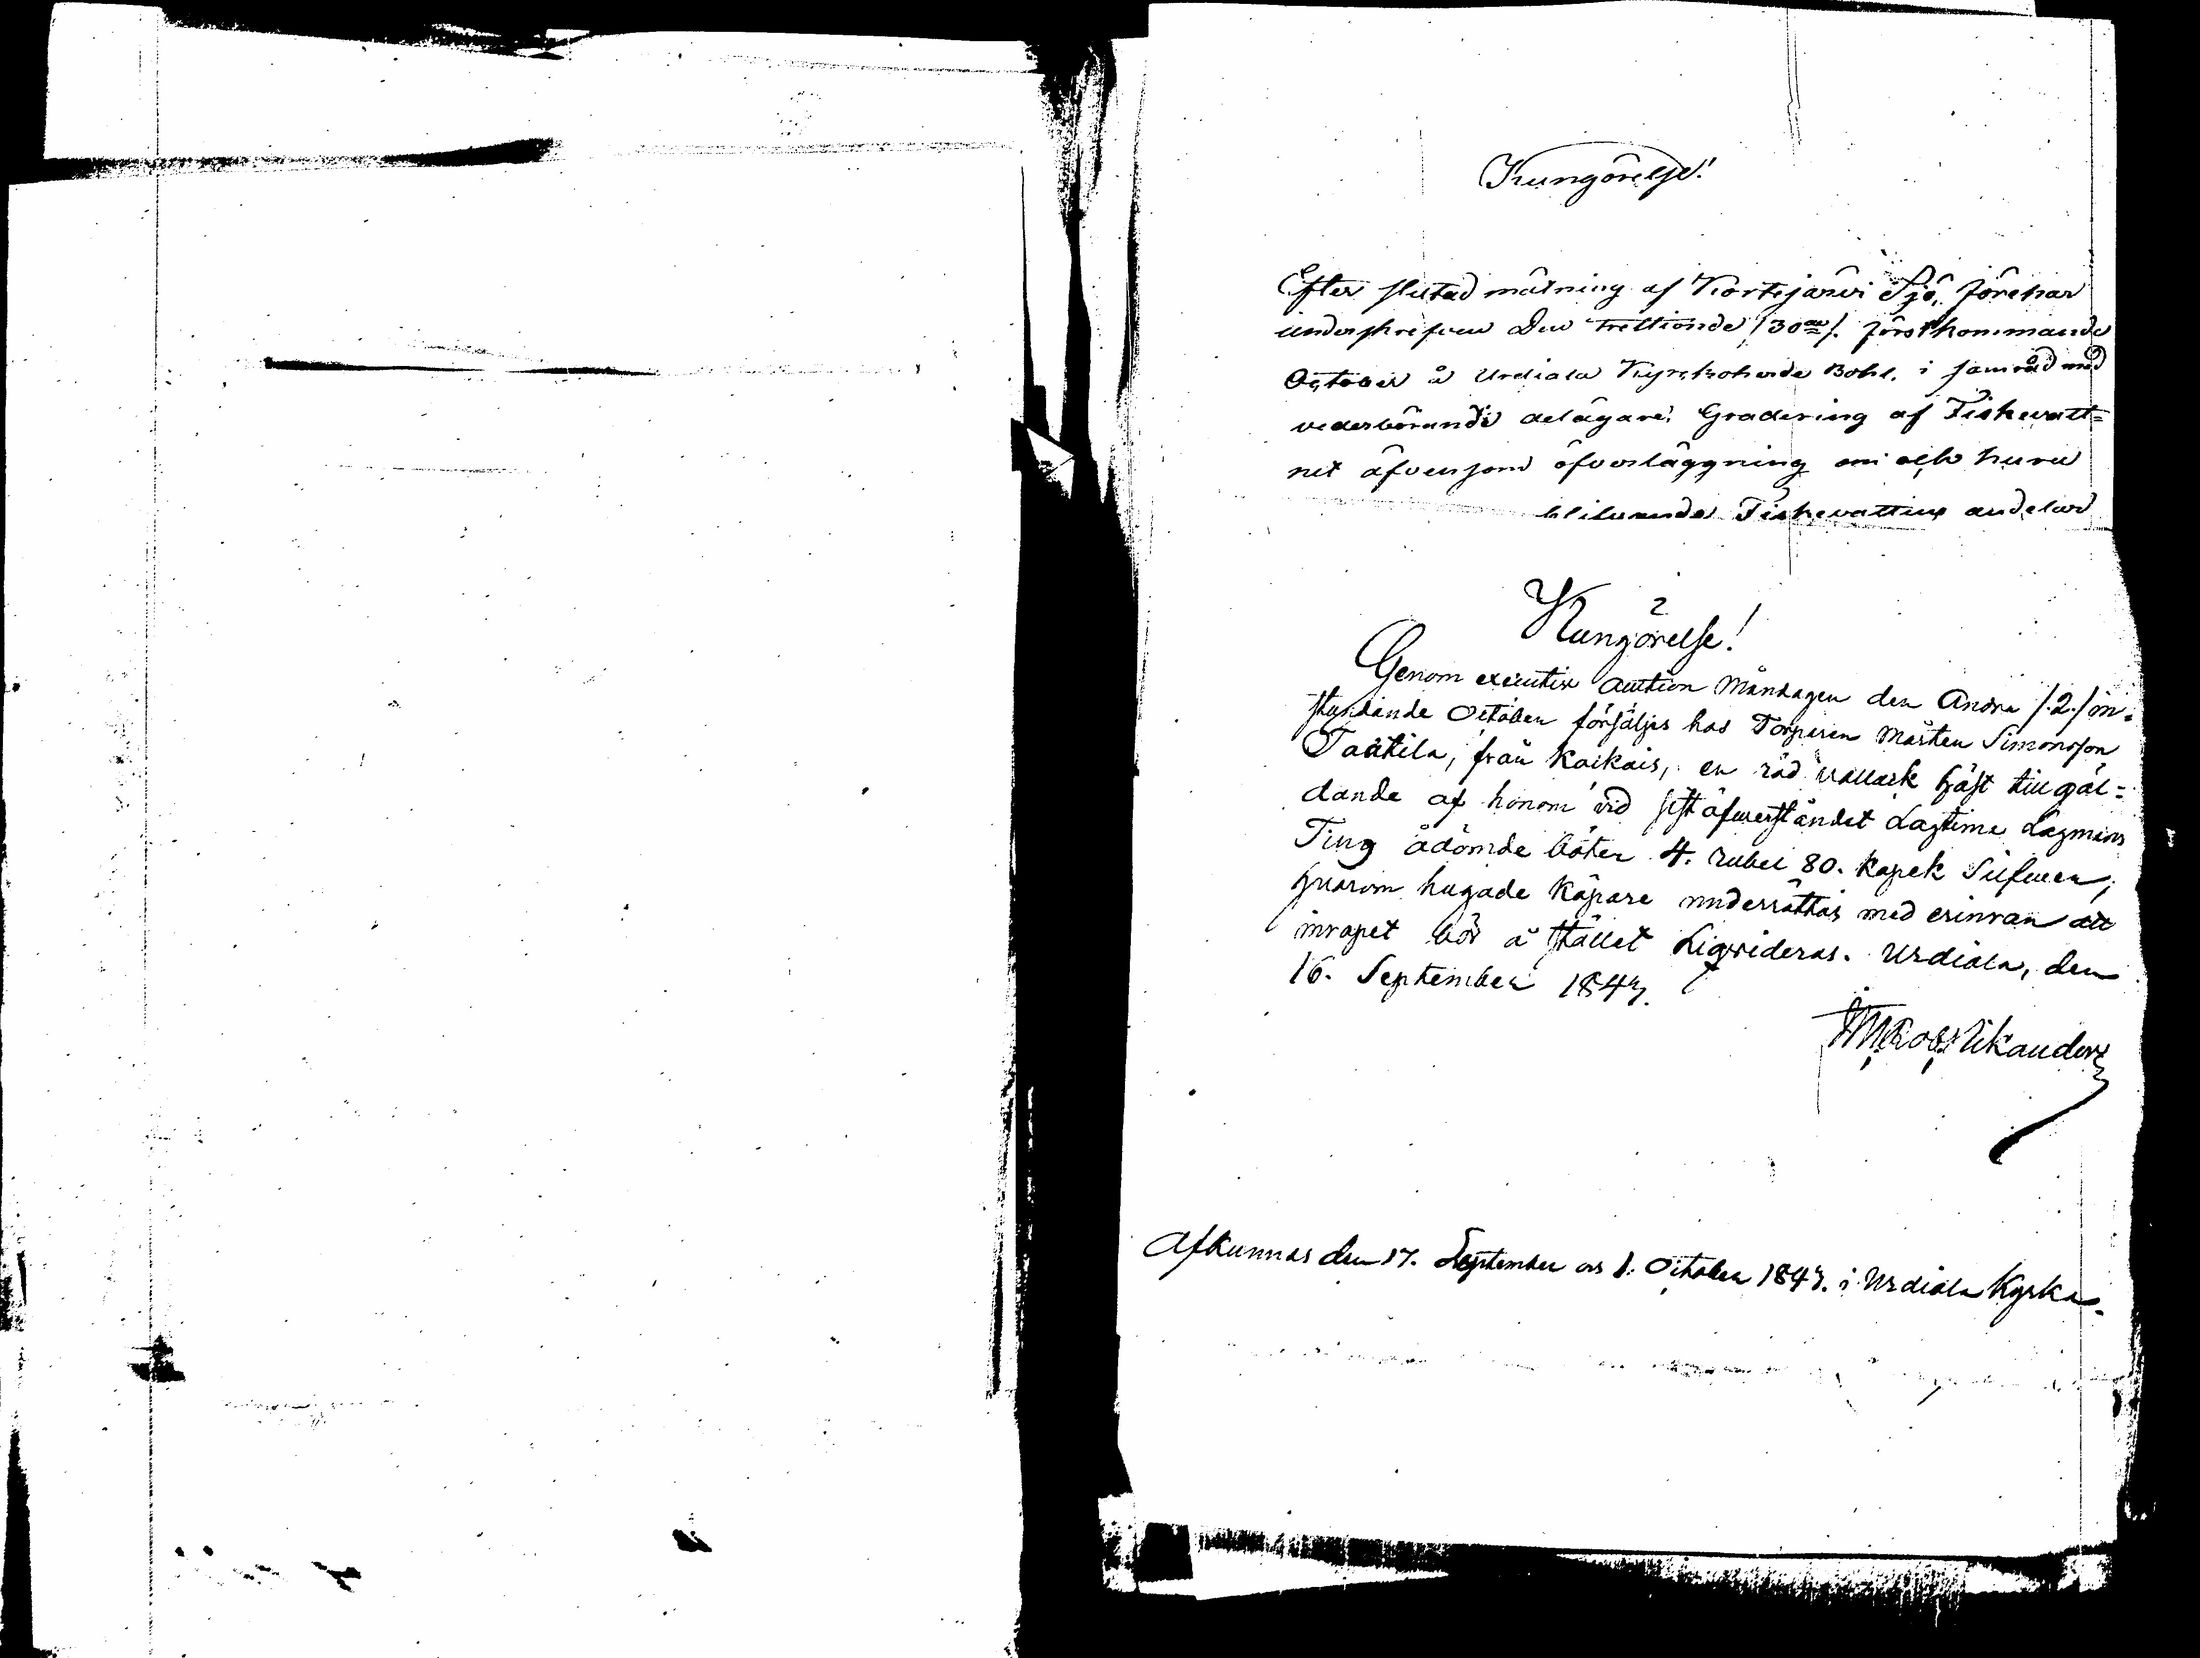 Kungörelse!
Efter slutad mätning af Kortejärvi Sjö, förehar
underskrefven den trettionde /30de/. förstkommande
October å Urdiala Kyrkoherde Bohl. i samråd med
vederbörande delägare, Gradering af Fiskevatt=
net äfvensom öfverläggning om och huru
blifvande Fiskevattens andelar
2
Kungörelse!
Genom executiv auction Måndagen den Andra /.2./ in=
stundande October försäljes hos Torparen Mårten Simonsson
Taatila, från Kaikais, en röd vallack häst till gäl=
dande af honom vid sist öfverståndet Lagtima Lagmans
Ting ådömde böter 4. rubel 80. kopek Silfver;
hvarom hugade köpare underrättas med erinran att
inropet bör å stället Liqvideras. Urdiala, den
16. September 1847.
Nikander
Afkunnas den 17. September och 1. October 1847. i Urdiala Kyrka.